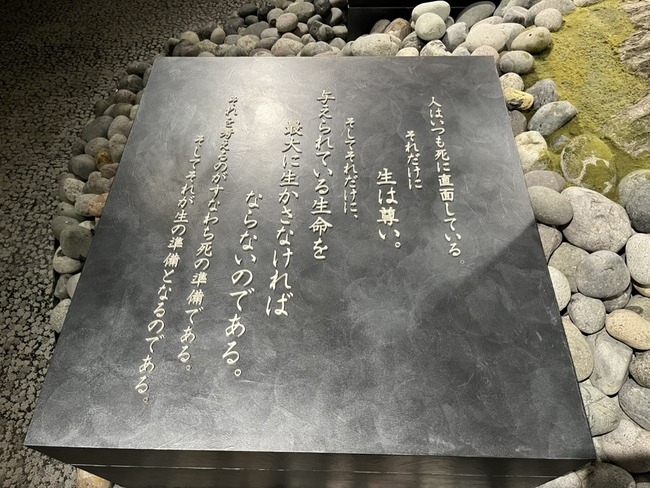 人はいつも死に直面している。
それだけに
生は尊い。
そしてそれだけに、
与えられている生命を
最大に生かさなければ
ならないのである。
それを考えるのがすなわち死の準備である。
そしてそれが生の準備となるのである。